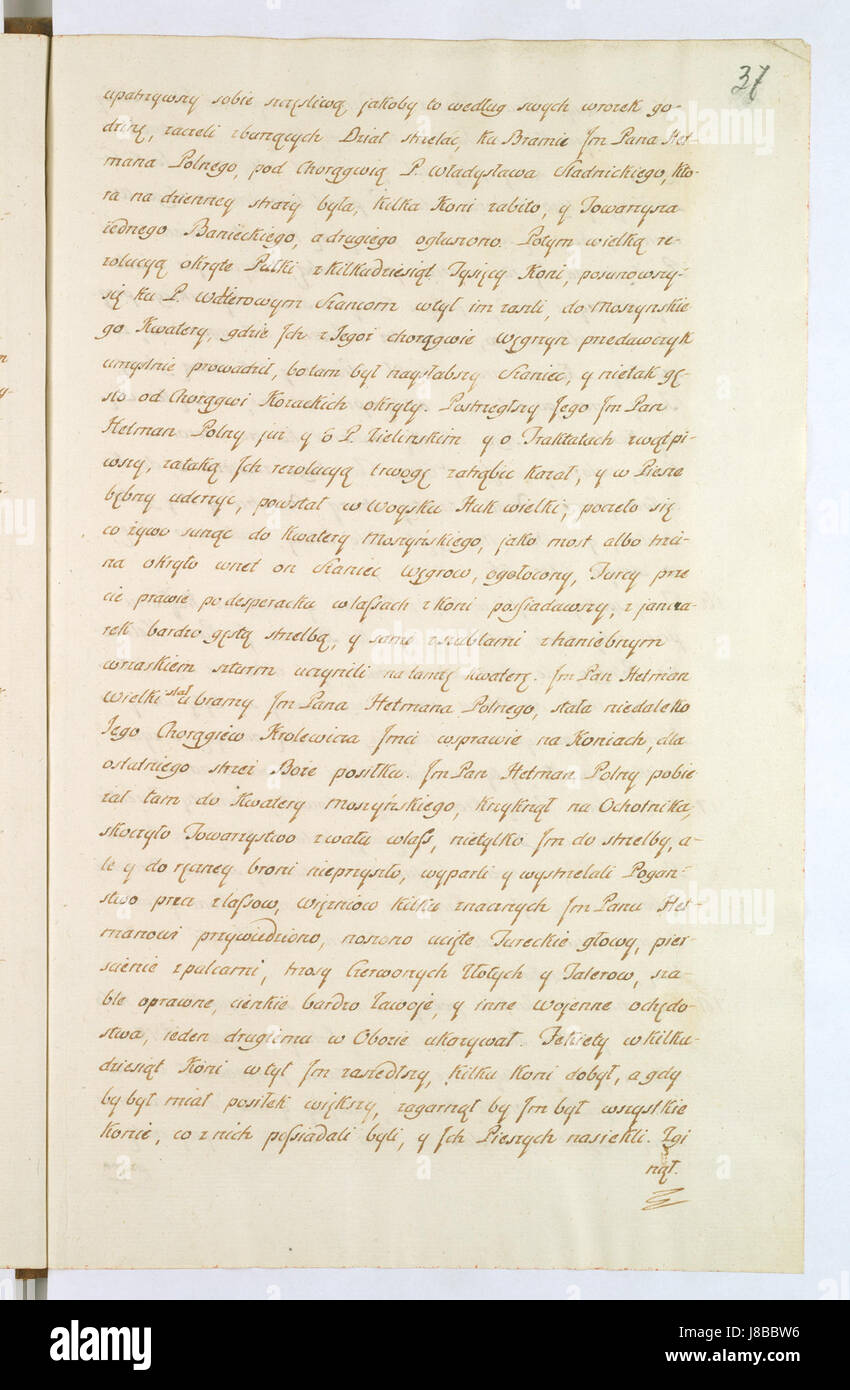 37
upatrzywszy sobie szczęśliwą, jakoby to według swych wrozek go-
dzinę, zaczeli zburzących Dział strzelac, ku Bramie Jm Pana Het-
mana Polnego, pod Chorągwią P. Władysława Stadnickiego, kto-
ra na dzienney straży była, kilka Koni zabito, y Towarzysza
iednego Banieckiego, a drugiego ogłuszono. Potym wielką re-
zolucyą okryte Pułki z kilkudziesiąt Tysięcy Koni, posunowszy-
się ku P. Weyerowym Szancom w tył im zaszli, do Moszynskie
go Kwatery, gdzie Ich z Jegoż chorągwie Węgrzyn przedawczyk
umyslnie prowadził, bo tam był naysłabszy Szaniec, y nie tak gę-
sto od Chorągwi Kozackich okryty. Postrzegłszy Jego Jm Pan
Hetman Polny już y o P. Zielinskim y o Traktatach zwątpi-
wszy, za taką Ich rezolucyą trwogę zatrąbic kazał, y w Piesze
bębny uderzyc, powstał w Woysku Huk wielki, poczeło się
co żywo sunąc do Kwatery Moszyńskiego, jako most albo trzci-
na okryło wnet on Szaniec Węgrow, ogołocony, Turcy prze
cie prawie po desperacku w lassach z Koni possiadawszy, z jancza-
rek bardzo gęstą strzelbą, y sami z szablami z haniebnym
wrzaskiem szturm uczynili na tamtę Kwaterę. Jm Pan Hetman
Wielki stał u bramy Jm Pana Hetmana Polnego, stała niedaleko
Jego Chorągiew Krolewica Jmci w sprawie na Koniach, dla
ostatniego strzeż Boże posiłku. Jm Pan Hetman Polny pobie
żał tam do Kwatery Moszyńskiego, krzyknął na Ochotnika,
skoczyło Towarzystwo z wału w lass, nie tylko Jm do strzelby, a-
le y do ręczney broni nie przyszło, wyparli y wystrzelali Pogań-
stwo precz z lassow, więzniow kilku znacznych Jm Panu Het-
manowi przywiedziono, noszono ucięte Tureckie głowy, pier-
scienie z palcami, trzosy Czerwonych Złotych y Talerow, sza-
ble oprawne, cienkie bardzo zawoje, y inne Wojenne ochędo-
stwa, ieden drugiemu w Obozie ukazywał. Fekiety w kilku-
dziesiąt Koni w tył Jm zaszedłszy, kilku Koni dobył, a gdy
by był miał posiłek większy, zagarnął by Jm był wszystkie
Konie, co z nich possiadali byli, y Ich Pieszych nasiekli. Zgi
nął.
alamy
Image ID: J8BBW6
www.alamy.com